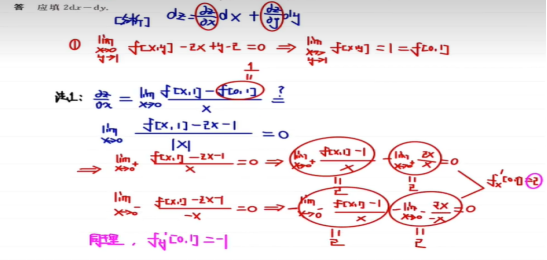 答 应填 2dx－dy.
[分析] dz = ∂z/∂x dx + ∂z/∂y dy
① lim x→0 y→1 f(x,y) - 2x + y - 2 = 0 ⇒ lim x→0 y→1 f(x,y) = 1 = f(0,1)
1
=
法1: ∂z/∂x = lim x→0 (f(x,1) - f(0,1))/x = ?
lim x→0 (f(x,1) - 2x - 1)/|x| = 0
⇒ lim x→0+ (f(x,1) - 2x - 1)/x = 0 ⇒ lim x→0+ (f(x,1) - 1)/x - lim x→0+ 2x/x = 0
= 2 = 2
f'x(0,1) = 2
lim x→0- (f(x,1) - 2x - 1)/-x = 0 ⇒ - lim x→0- (f(x,1) - 1)/x - lim x→0- 2x/-x = 0
= 2 = 2
同理, f'y(0,1) = -1